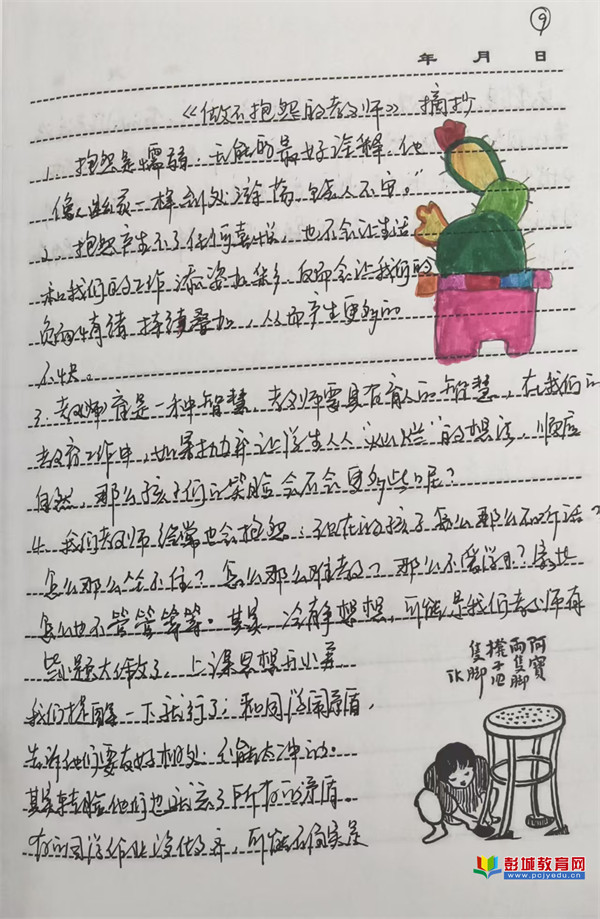 9
年 月 日
《做不抱怨的老师》 摘抄
1. 抱怨是懦弱、无能的最好诠释,他
像幽灵一样到处游荡,令人不安。"
2. 抱怨产生不了任何喜悦,也不会让生活
和我们的工作添姿加彩,反而会让我们的
负面情绪持续叠加,从而产生更多的
不快。
3. 教育是一种智慧,教师需具有育人的智慧,在我们的
教育工作中,如果抛弃让学生人人"灿烂"的想法,顺应
自然,那么孩子们的笑脸会不会更多些呢?
4. 我们教师经常也会抱怨:现在的孩子怎么那么不听话?
怎么那么坐不住?怎么那么难教?那么不爱学习?家长
怎么也不管管等等。其实,冷静想想,可能是我们老师有
些小题大做了,上课思想开小差
我们提醒一下就行了;和同学闹矛盾,
告诉他们要友好相处,不能太冲的。
其实转脸他们也就忘了所有的矛盾。
有的同学作业没做齐,可能不同完
阿寶
兩隻腳
搭子四
隻腳
彭城教育网
www.pcjyedu.cn